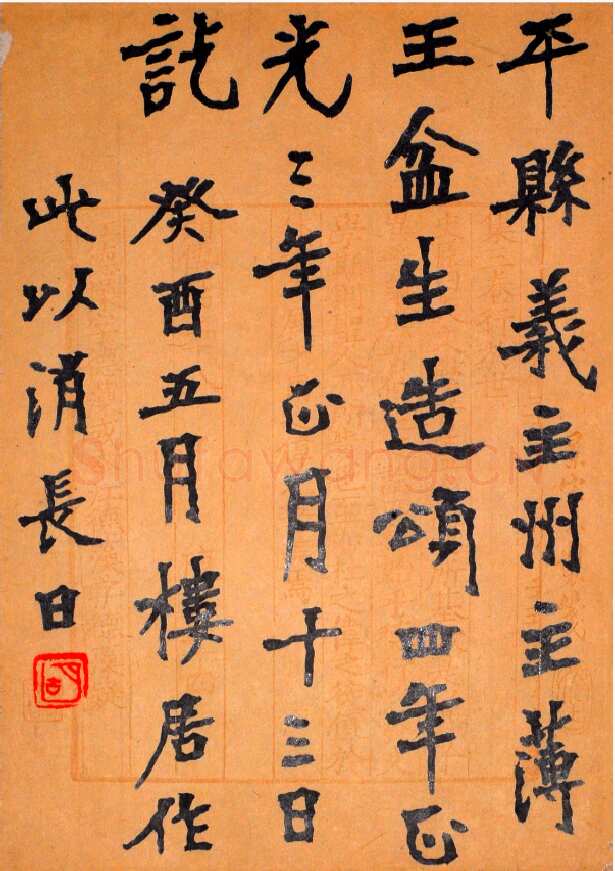 平縣義主州主薄
王盆生造頌四年正
光三年正月十三日
訖 癸酉五月樓居作
此以消長日
Shufawang.cn